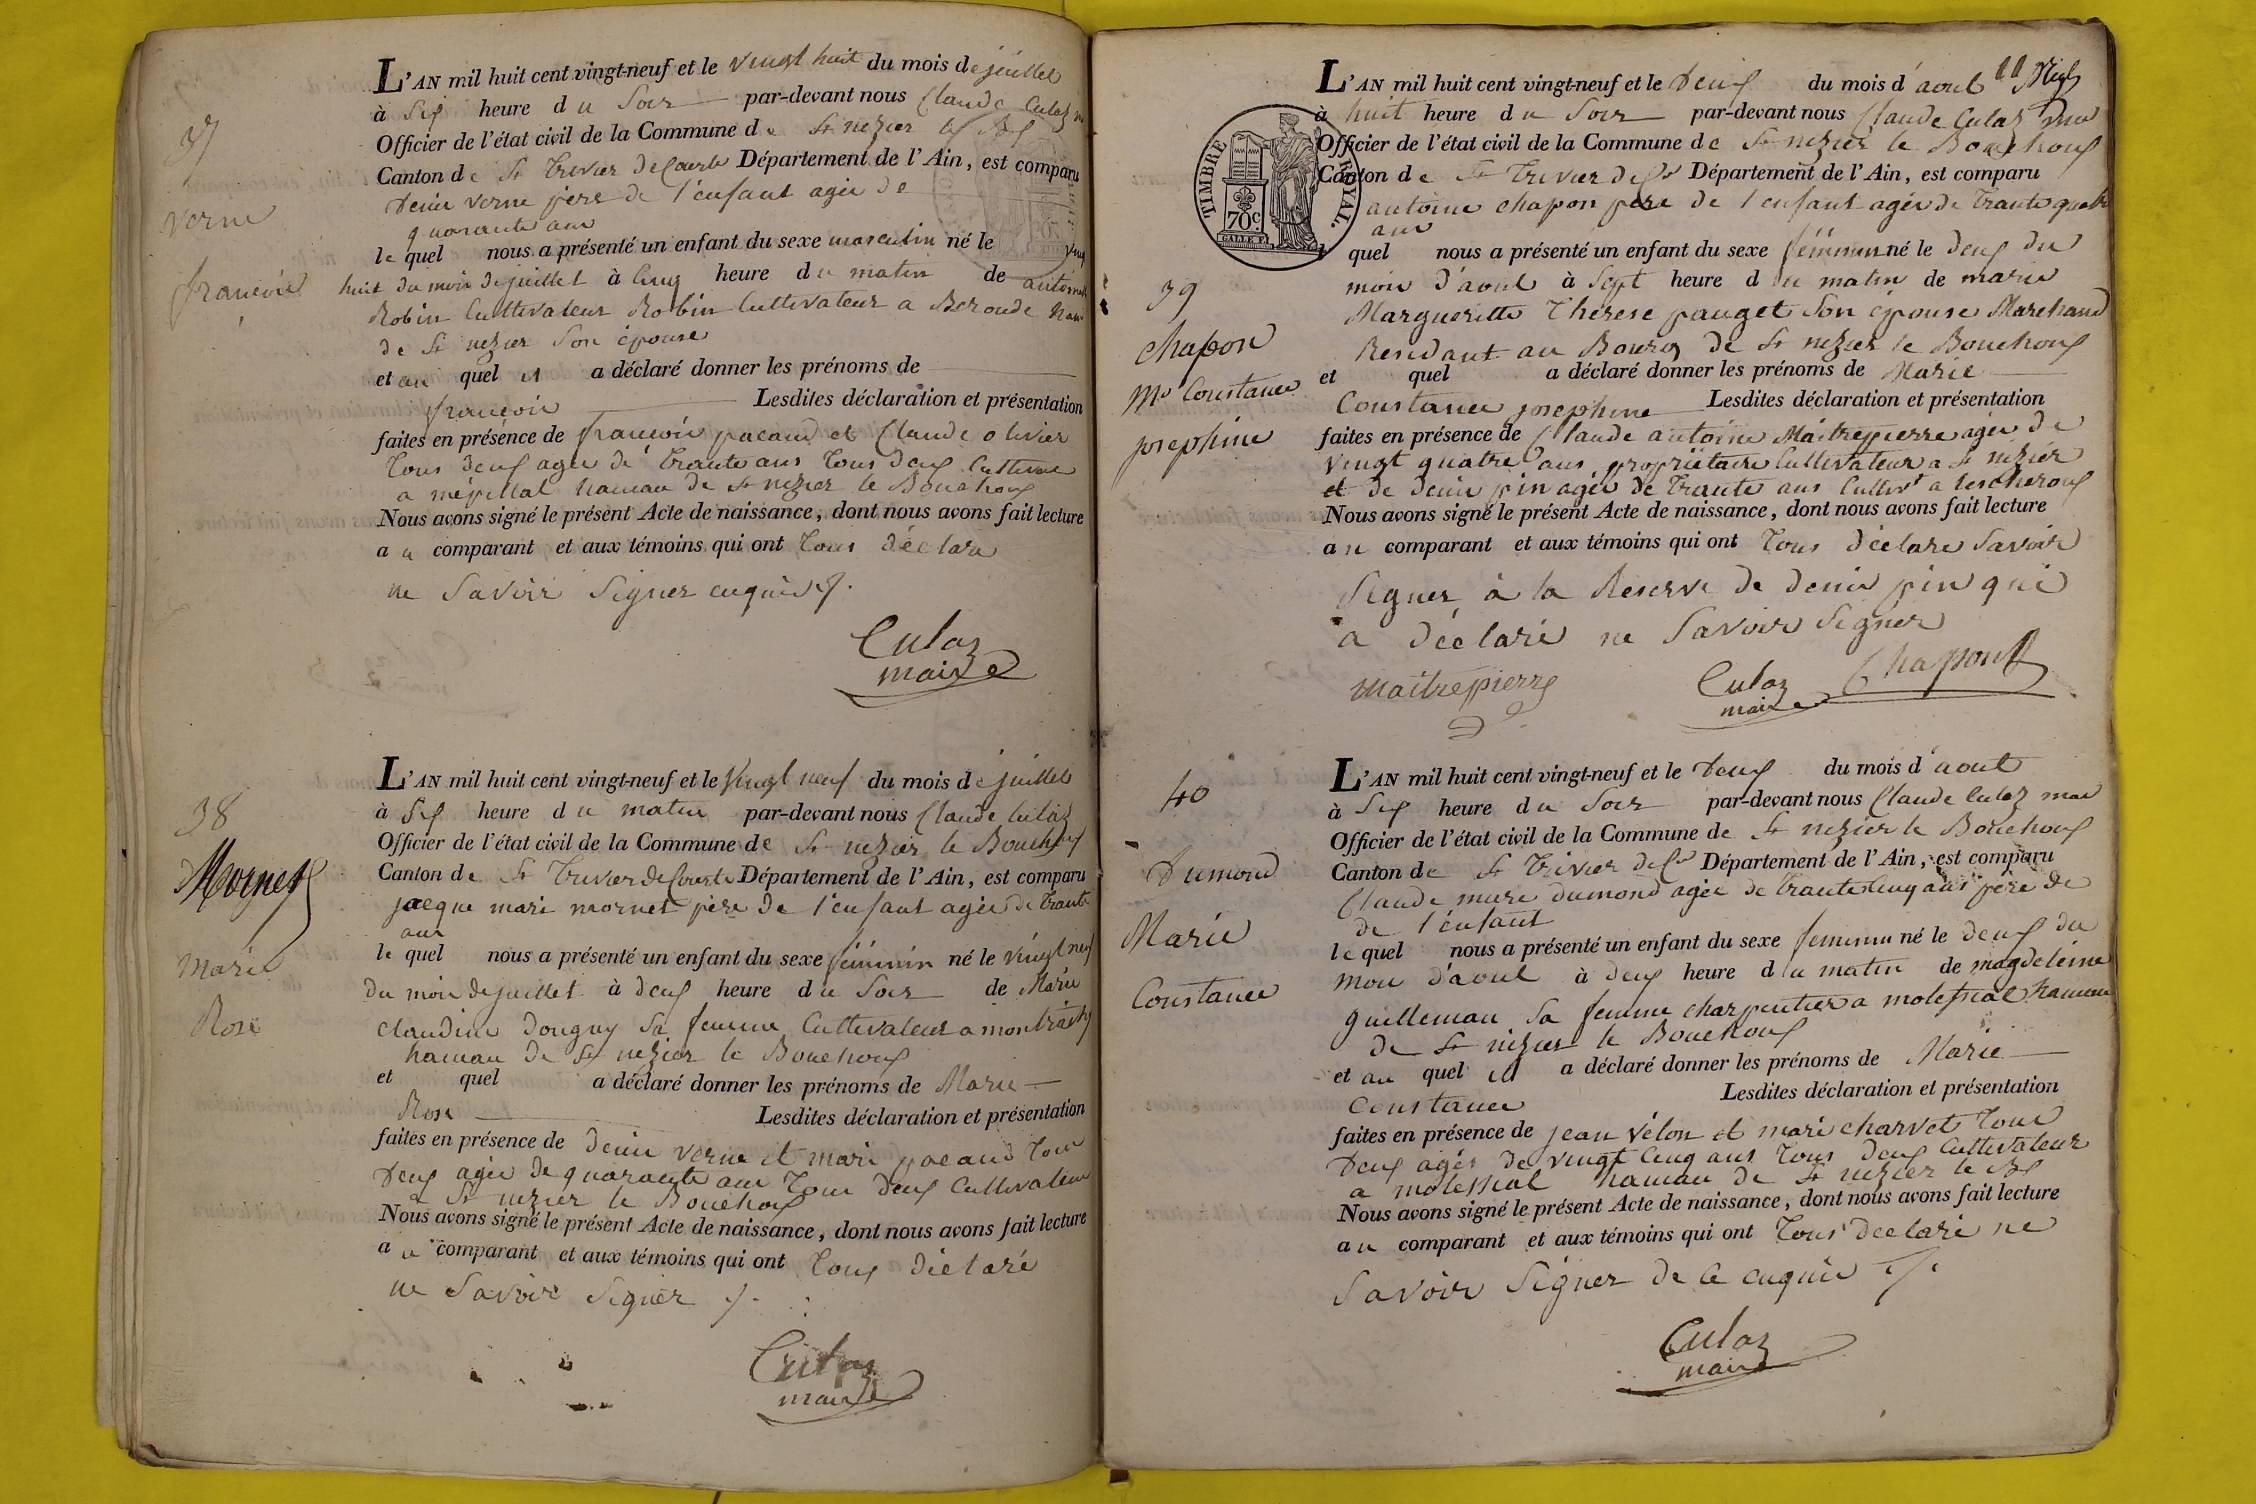 37
verne
francois
L'AN mil huit cent vingt-neuf et le vingt huit du mois de juillet
à six heure du Soir par-devant nous Claude Culaz
Officier de l'état civil de la Commune de St nezier le Bx
Canton de St Trivier de Courte Département de l'Ain, est comparu
Denis verne père de l'enfant agée de
quarante ans
le quel nous a présenté un enfant du sexe masculin né le vingt
huit du mois de juillet à Cinq heure du matin de
Robin Cultivateur Robin Cultivateur a Beronde
de St nezier Son épouse
et au quel il a déclaré donner les prénoms de
francois Lesdites déclaration et présentation
faites en présence de francois pacaud et Claude olivier
Tous deux agée de trante ans Tous deux Cultivat
a mépillat hameau de St nezier le Bouchoux
Nous avons signé le présent Acte de naissance, dont nous avons fait lecture
au comparant et aux témoins qui ont Tous déclaré
ne Savoir Signer enquis
Culaz
maire
38
Mornet
Marie
Rose
L'AN mil huit cent vingt-neuf et le Vingt neuf du mois de juillet
à six heure du matin par-devant nous Claude Culaz
Officier de l'état civil de la Commune de St nezier le Bouchoux
Canton de St Trivier de Courte Département de l'Ain, est comparu
jacque mari mornet père de l'enfant agée de trante
ans
le quel nous a présenté un enfant du sexe féminin né le vingt neuf
du mois de juillet à deux heure du Soir de Marie
Claudine Donguy Sa femme Cultivateur a
hameau de St nezier le Bouchoux
et quel a déclaré donner les prénoms de Marie
Rose Lesdites déclaration et présentation
faites en présence de denis verne et mari pacaud Tous
Deux agée de quarante ans Tous deux Cultivateur
a St nezier le Bouchoux
Nous avons signé le présent Acte de naissance, dont nous avons fait lecture
au comparant et aux témoins qui ont Tous déclaré
ne Savoir Signer
Culaz
maire
TIMBRE ROYAL.
70c
39
Chapon
Me Constance
josephine
L'AN mil huit cent vingt-neuf et le Deux du mois d'aout
à huit heure du Soir par-devant nous Claude Culaz
Officier de l'état civil de la Commune de St nezier le Bouchoux
Canton de St Trivier de Cte Département de l'Ain, est comparu
antoine chapon père de l'enfant agée de Trante quatre
ans
le quel nous a présenté un enfant du sexe féminin né le deux du
mois d'aout à Sept heure du matin de marie
Margueritte Thérese pauget Son épouse Marchand
Residant au Bourg de St nezier le Bouchoux
et quel a déclaré donner les prénoms de Marie
Constance josephine Lesdites déclaration et présentation
faites en présence de Claude antoine Maitrepierre agée de
vingt quatre ans propriétaire Cultivateur a St nezier
et de denis pin agée de Trante ans Cultivt a lescheroux
Nous avons signé le présent Acte de naissance, dont nous avons fait lecture
au comparant et aux témoins qui ont Tous déclaré Savoir
Signer à la Reserve de denis pin qui
a déclaré ne Savoir Signer
maitrepierre
Culaz
maire
Chapon
40
Dumond
Marie
Constance
L'AN mil huit cent vingt-neuf et le Deux du mois d'aout
à six heure du Soir par-devant nous Claude Culaz
Officier de l'état civil de la Commune de St nezier le Bouchoux
Canton de St Trivier de Cte Département de l'Ain, est comparu
Claude dumond agée de Trante Cinq ans père de
de l'enfant
le quel nous a présenté un enfant du sexe feminin né le deux du
mois d'aout à deux heure du matin de magdeleine
guilleman Sa femme charpentier a molessiat hameau
de St nezier le Bouchoux
et au quel il a déclaré donner les prénoms de Marie
Constance Lesdites déclaration et présentation
faites en présence de jean vélon et mari charvet Tous
Deux agés de vingt Cinq ans Tous deux Cultivateur
a molessiat hameau de St nezier le Bx
Nous avons signé le présent Acte de naissance, dont nous avons fait lecture
au comparant et aux témoins qui ont Tous déclaré ne
Savoir Signer de ce enquis
Culaz
maire